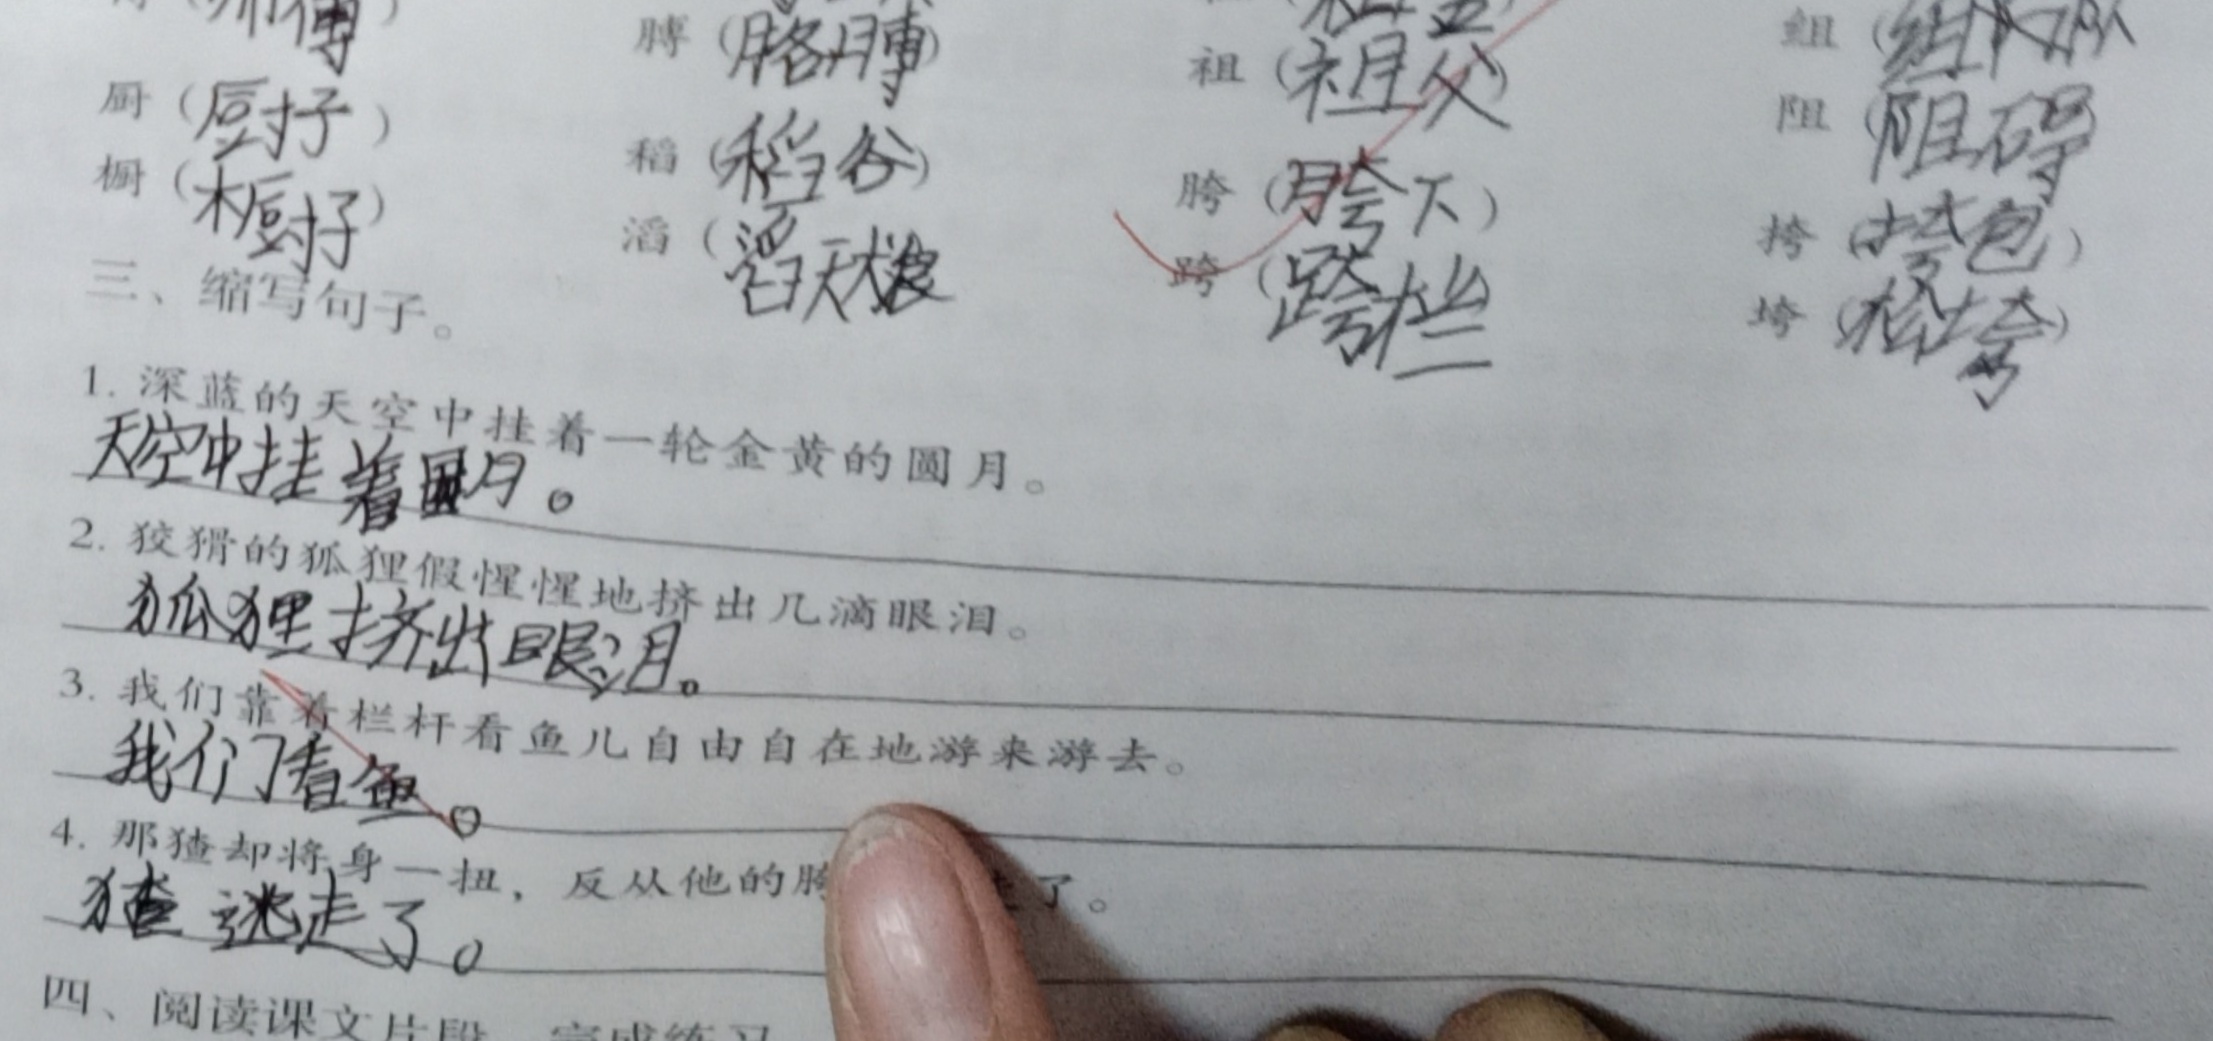 傅（师傅） 膊（胳膊） 祖 组（组队）
厨（厨子） 稻（稻谷） 祖（祖父） 阻（阻碍）
橱（橱子） 滔（滔天大浪 胯（胯下） 挎（挎包）
三、缩写句子。 跨（跨栏 垮（松垮）
1. 深蓝的天空中挂着一轮金黄的圆月。
天空中挂着圆月。
2. 狡猾的狐狸假惺惺地挤出几滴眼泪。
狐狸挤出眼泪。
3. 我们靠着栏杆看鱼儿自由自在地游来游去。
我们看鱼。
4. 那猹却将身一扭，反从他的胯 了。
猹逃走了。
四、阅读课文片段，完成练习